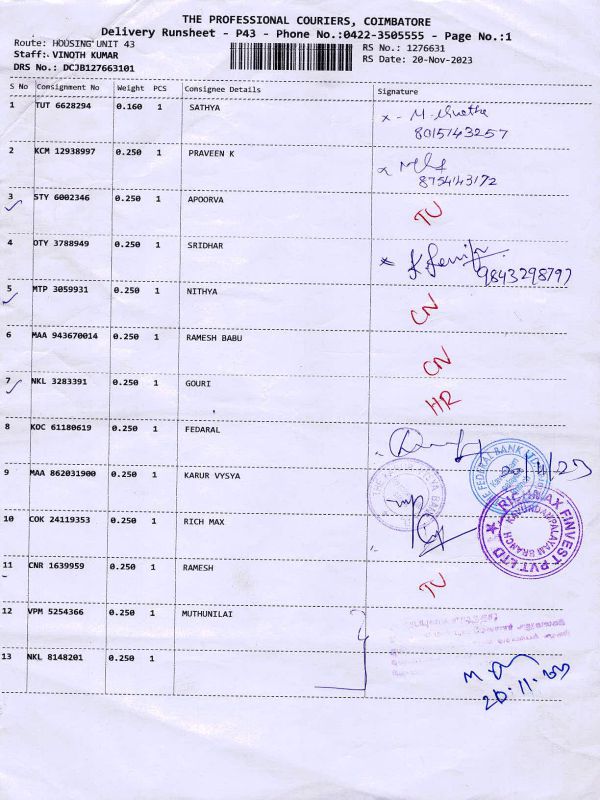 THE PROFESSIONAL COURIERS, COIMBATORE
Delivery Runsheet - P43 - Phone No.:0422-3505555 - Page No.:1
Route: HOUSING UNIT 43
RS No.: 1276631
Staff: VINOTH KUMAR
RS Date: 20-Nov-2023
DRS No.: DCJB127663101
S No Consignment No Weight PCS Consignee Details Signature
1 TUT 6628294 0.160 1 SATHYA
8015143257
2 KCM 12938997 0.250 1 PRAVEEN K
8754143172
3 STY 6002346 0.250 1 APOORVA
TU
4 OTY 3788949 0.250 1 SRIDHAR
9843298797
5 MTP 3059931 0.250 1 NITHYA
CN
6 MAA 943670014 0.250 1 RAMESH BABU
CN
7 NKL 3283391 0.250 1 GOURI
HR
8 KOC 61180619 0.250 1 FEDARAL
FEDERAL BANK LTD
9 MAA 862031900 0.250 1 KARUR VYSYA
10 COK 24119353 0.250 1 RICH MAX
RICHMAX FINVEST PVT LTD
KAVUNDAMPALAYAM BRANCH
11 CNR 1639959 0.250 1 RAMESH
TU
12 VPM 5254366 0.250 1 MUTHUNILAI
13 NKL 8148201 0.250 1
20.11.23